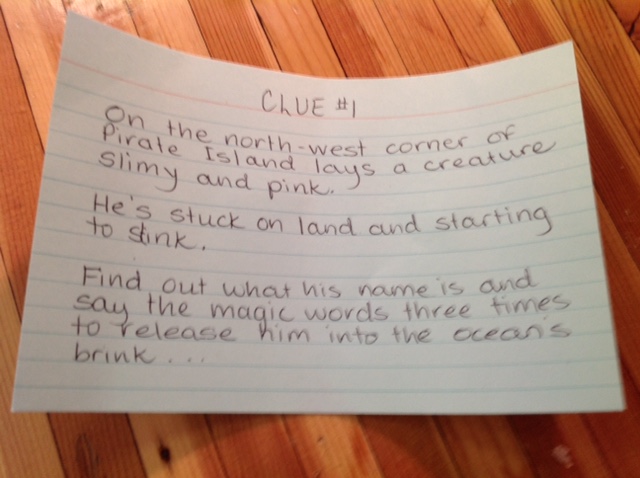 CLUE #1
On the north-west corner of
Pirate Island lays a creature
slimy and pink.
He's stuck on land and starting
to stink.
Find out what his name is and
say the magic words three times
to release him into the ocean's
brink...